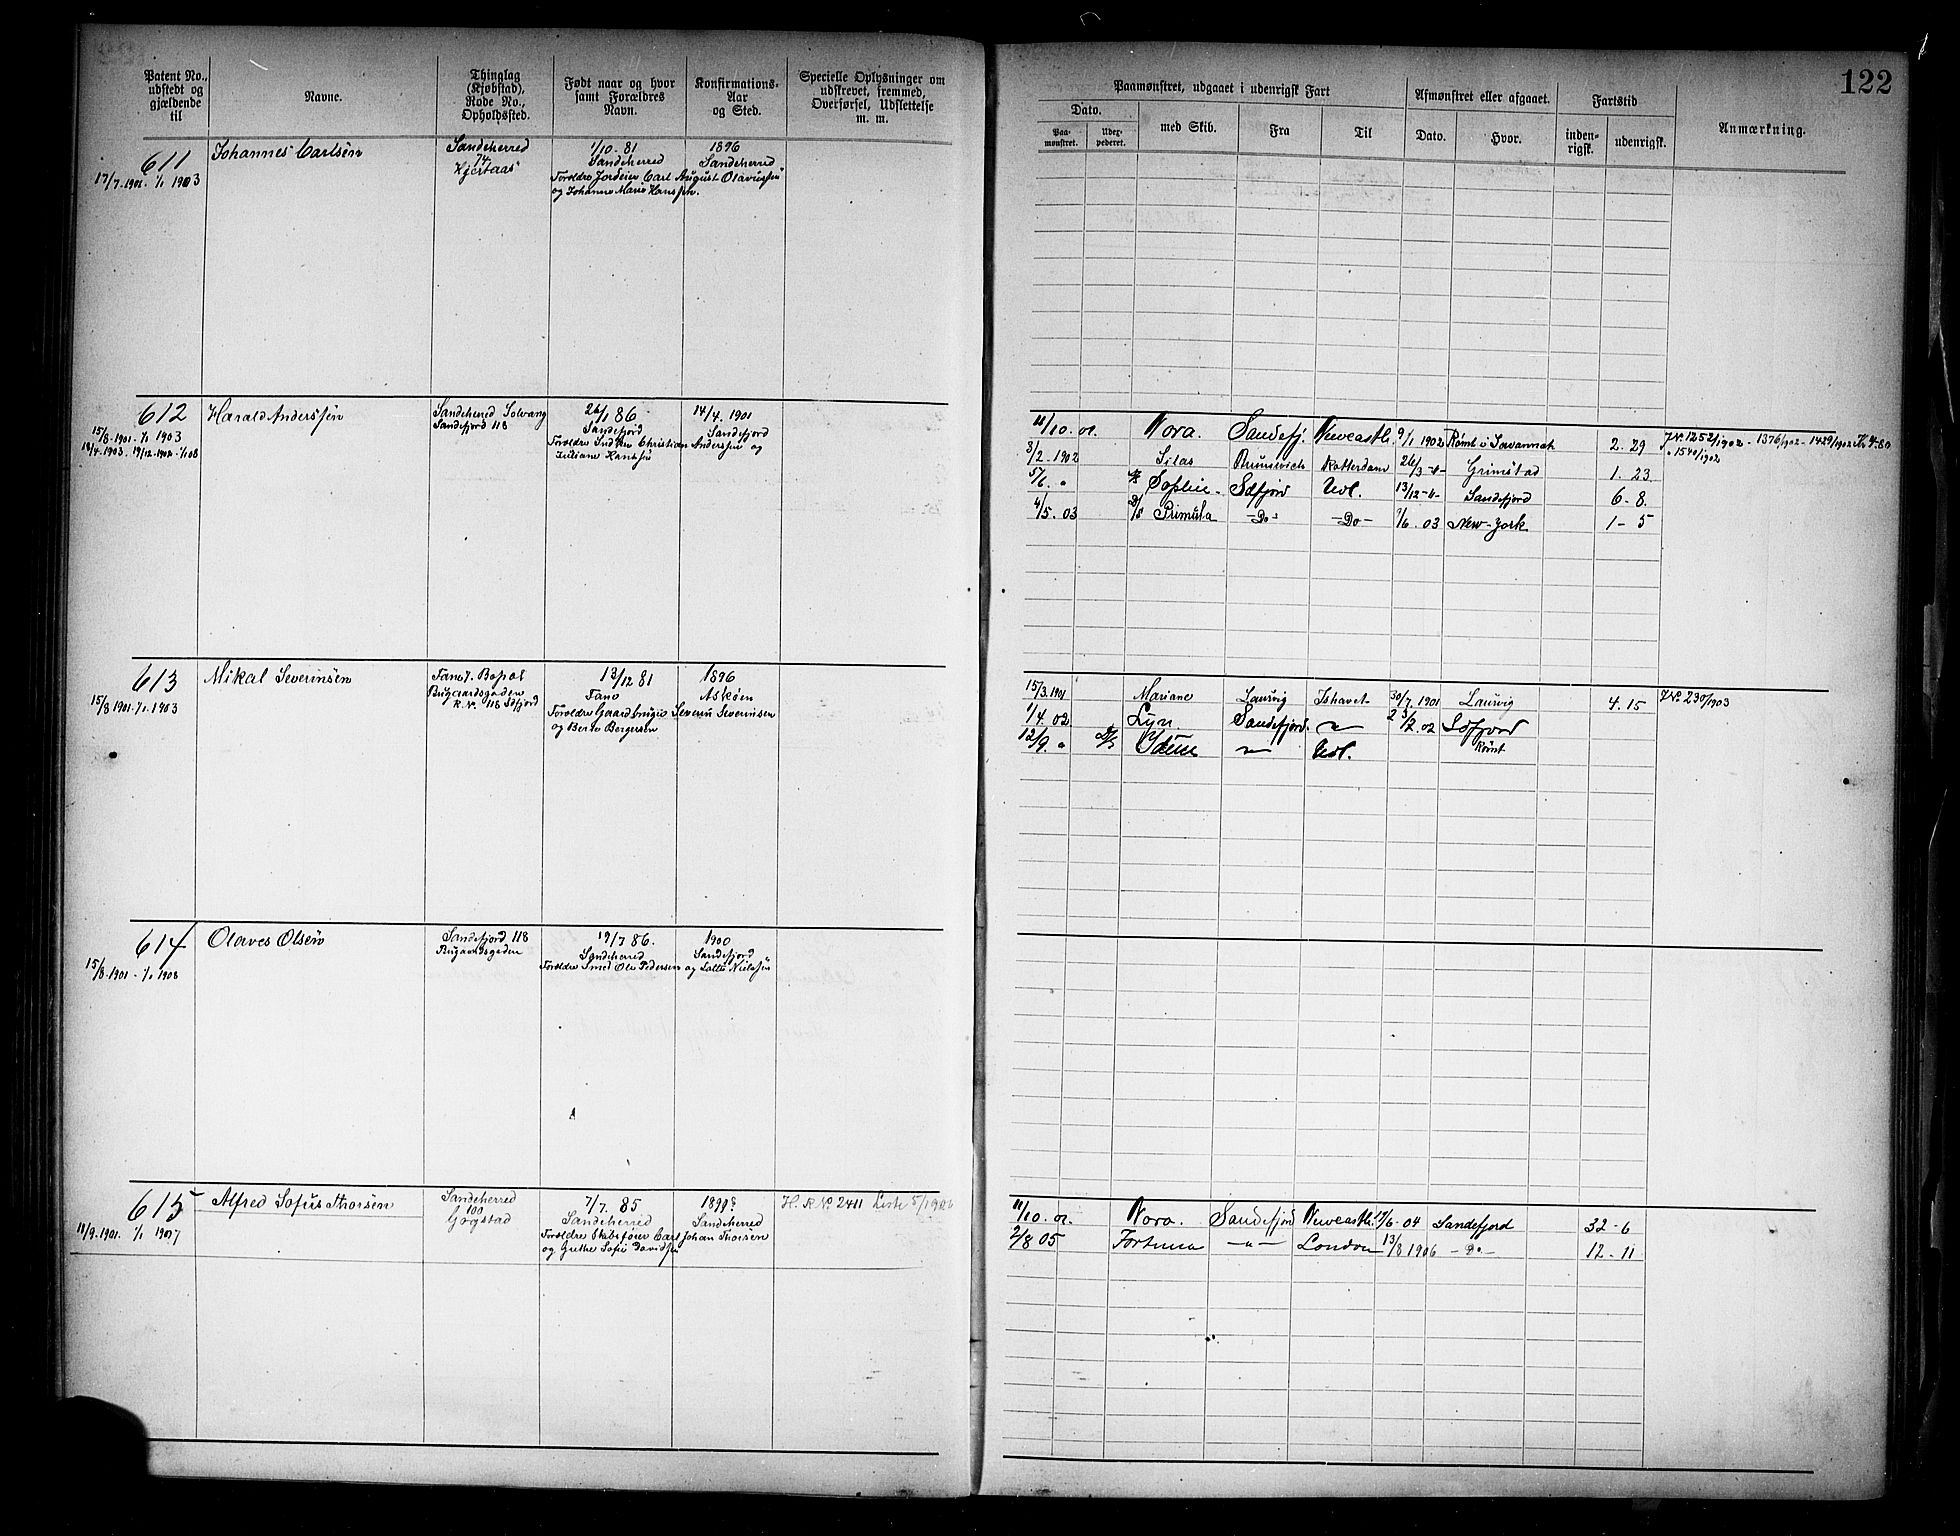 122
Patent No., udstedt og gjældende til
Navne.
Thinglag (Kjøbstad), Rode No., Opholdssted.
Født naar og hvor samt Forældres Navn.
Konfirmations-Aar og Sted.
Specielle Oplysninger om udstrevet, fremmed, Overførsel, Udslettelse m. m.
Paamønstret, udgaaet i udenrigsk Fart
Afmønstret eller afgaaet.
Fartstid
Anmærkning.
Dato.
Paa-mønstret.
Uder-pederet.
med Skib.
Fra
Til
Dato.
Hvor.
inden-rigsk.
udenrigsk.
611 Johannes Carlsen Sandeherred 1/10-81 1896
74 Sandeherred Sandeherred
17/7-1901-1/1 1903 Hjertaas Forældre Jordeier Carl August Olaussen
og Johanne Marie Hanssen.
612 Harald Anderssen Sandeherred Solvang 26/1 86 14/4.1901
15/8-1901-1/1 1903 Sandefjord 118 Sandefjord Sandefjord
18/4.1903. 19/12-1902-1/1 08 Forældre Christian Anderssen og
Juliane Hanssen
11/10.01. Nora. Sandefj. Newcastle 9/1 1902 Rømt i Savannah 2. 29 J.N. 1252/1902 - 1376/1902 - 1429/1902 Kr 4.80
3/2.1902 Silas Brunsvich Rotterdam 26/3 -"- Grimstad 1. 23. " 1540/1902
5/6. " Sophie Sdfjord Udl. 13/12 -"- Sandefjord 6-8.
4/5.03 Primula -Do- -Do- 9/6.03 New-York 1-5
613 Mikal Severinsen Fano 13/12 81 1896
15/8 1901-1/1.1903 Bugaardsgaden Fano Askøen
R.N. 118 Sdfjord Forældre Gaardbruger Severin Severinsen
og Berte Bergersen
15/3.1901 Mariane Laurvig Ishavet 30/7.1901 Laurvig 4.15 J.N. 230/1903
1/4.02 Lyn Sandefjord. " 02 Sdfjord
12/9. " Idun " Udl. Rømt
614 Olaves Olsen Sandefjord 118 19/7 86. 1900
15/8-1901-1/1 1908 Bugaardsgaden Sandeherred Sandefjord
Forældre Smed Ole Pedersen og Lalle Nielsen
615 Alfred Sofus Thorsen Sandeherred 7/7.85 1899? H. R. N. 2411 Liste 5/1906
11/9.1901. 1/1 1907 100 Sandeherred Sandeherred
Gogstad Forældre Skibsfører Carl Johan Thorsen
og Grethe Sofie Davidsen
11/10.01. Nora. Sandefjord Newcastle 17/6-04 Sandefjord 32-6
2/8 05 Fortuna -"- London 13/8 1906 -Do- 12-11